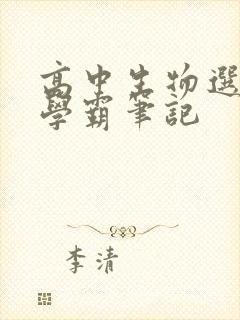 高中生物選
學霸筆記
李清